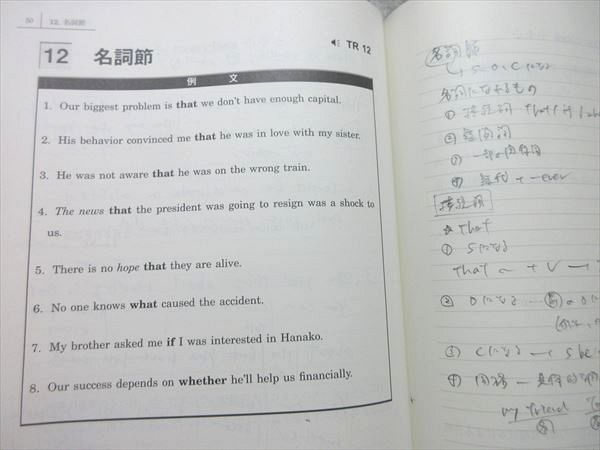 50
12. 名詞節
12 名詞節
TR 12
例 文
1. Our biggest problem is that we don't have enough capital.
2. His behavior convinced me that he was in love with my sister.
3. He was not aware that he was on the wrong train.
4. The news that the president was going to resign was a shock to
us.
5. There is no hope that they are alive.
6. No one knows what caused the accident.
7. My brother asked me if I was interested in Hanako.
8. Our success depends on whether he'll help us financially.
名詞節
S・O・Cになる
名詞になるもの
① 接続詞 that if
② 疑問詞
接続詞
☆ that
① Sになる
that ~ + V
② Oになる
③ Cになる
④ 同格
my friend